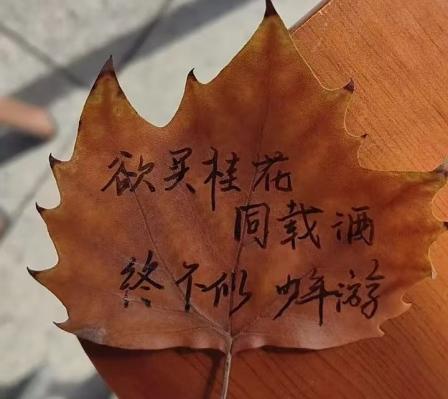 欲买桂花
同载酒
终不似 少年游